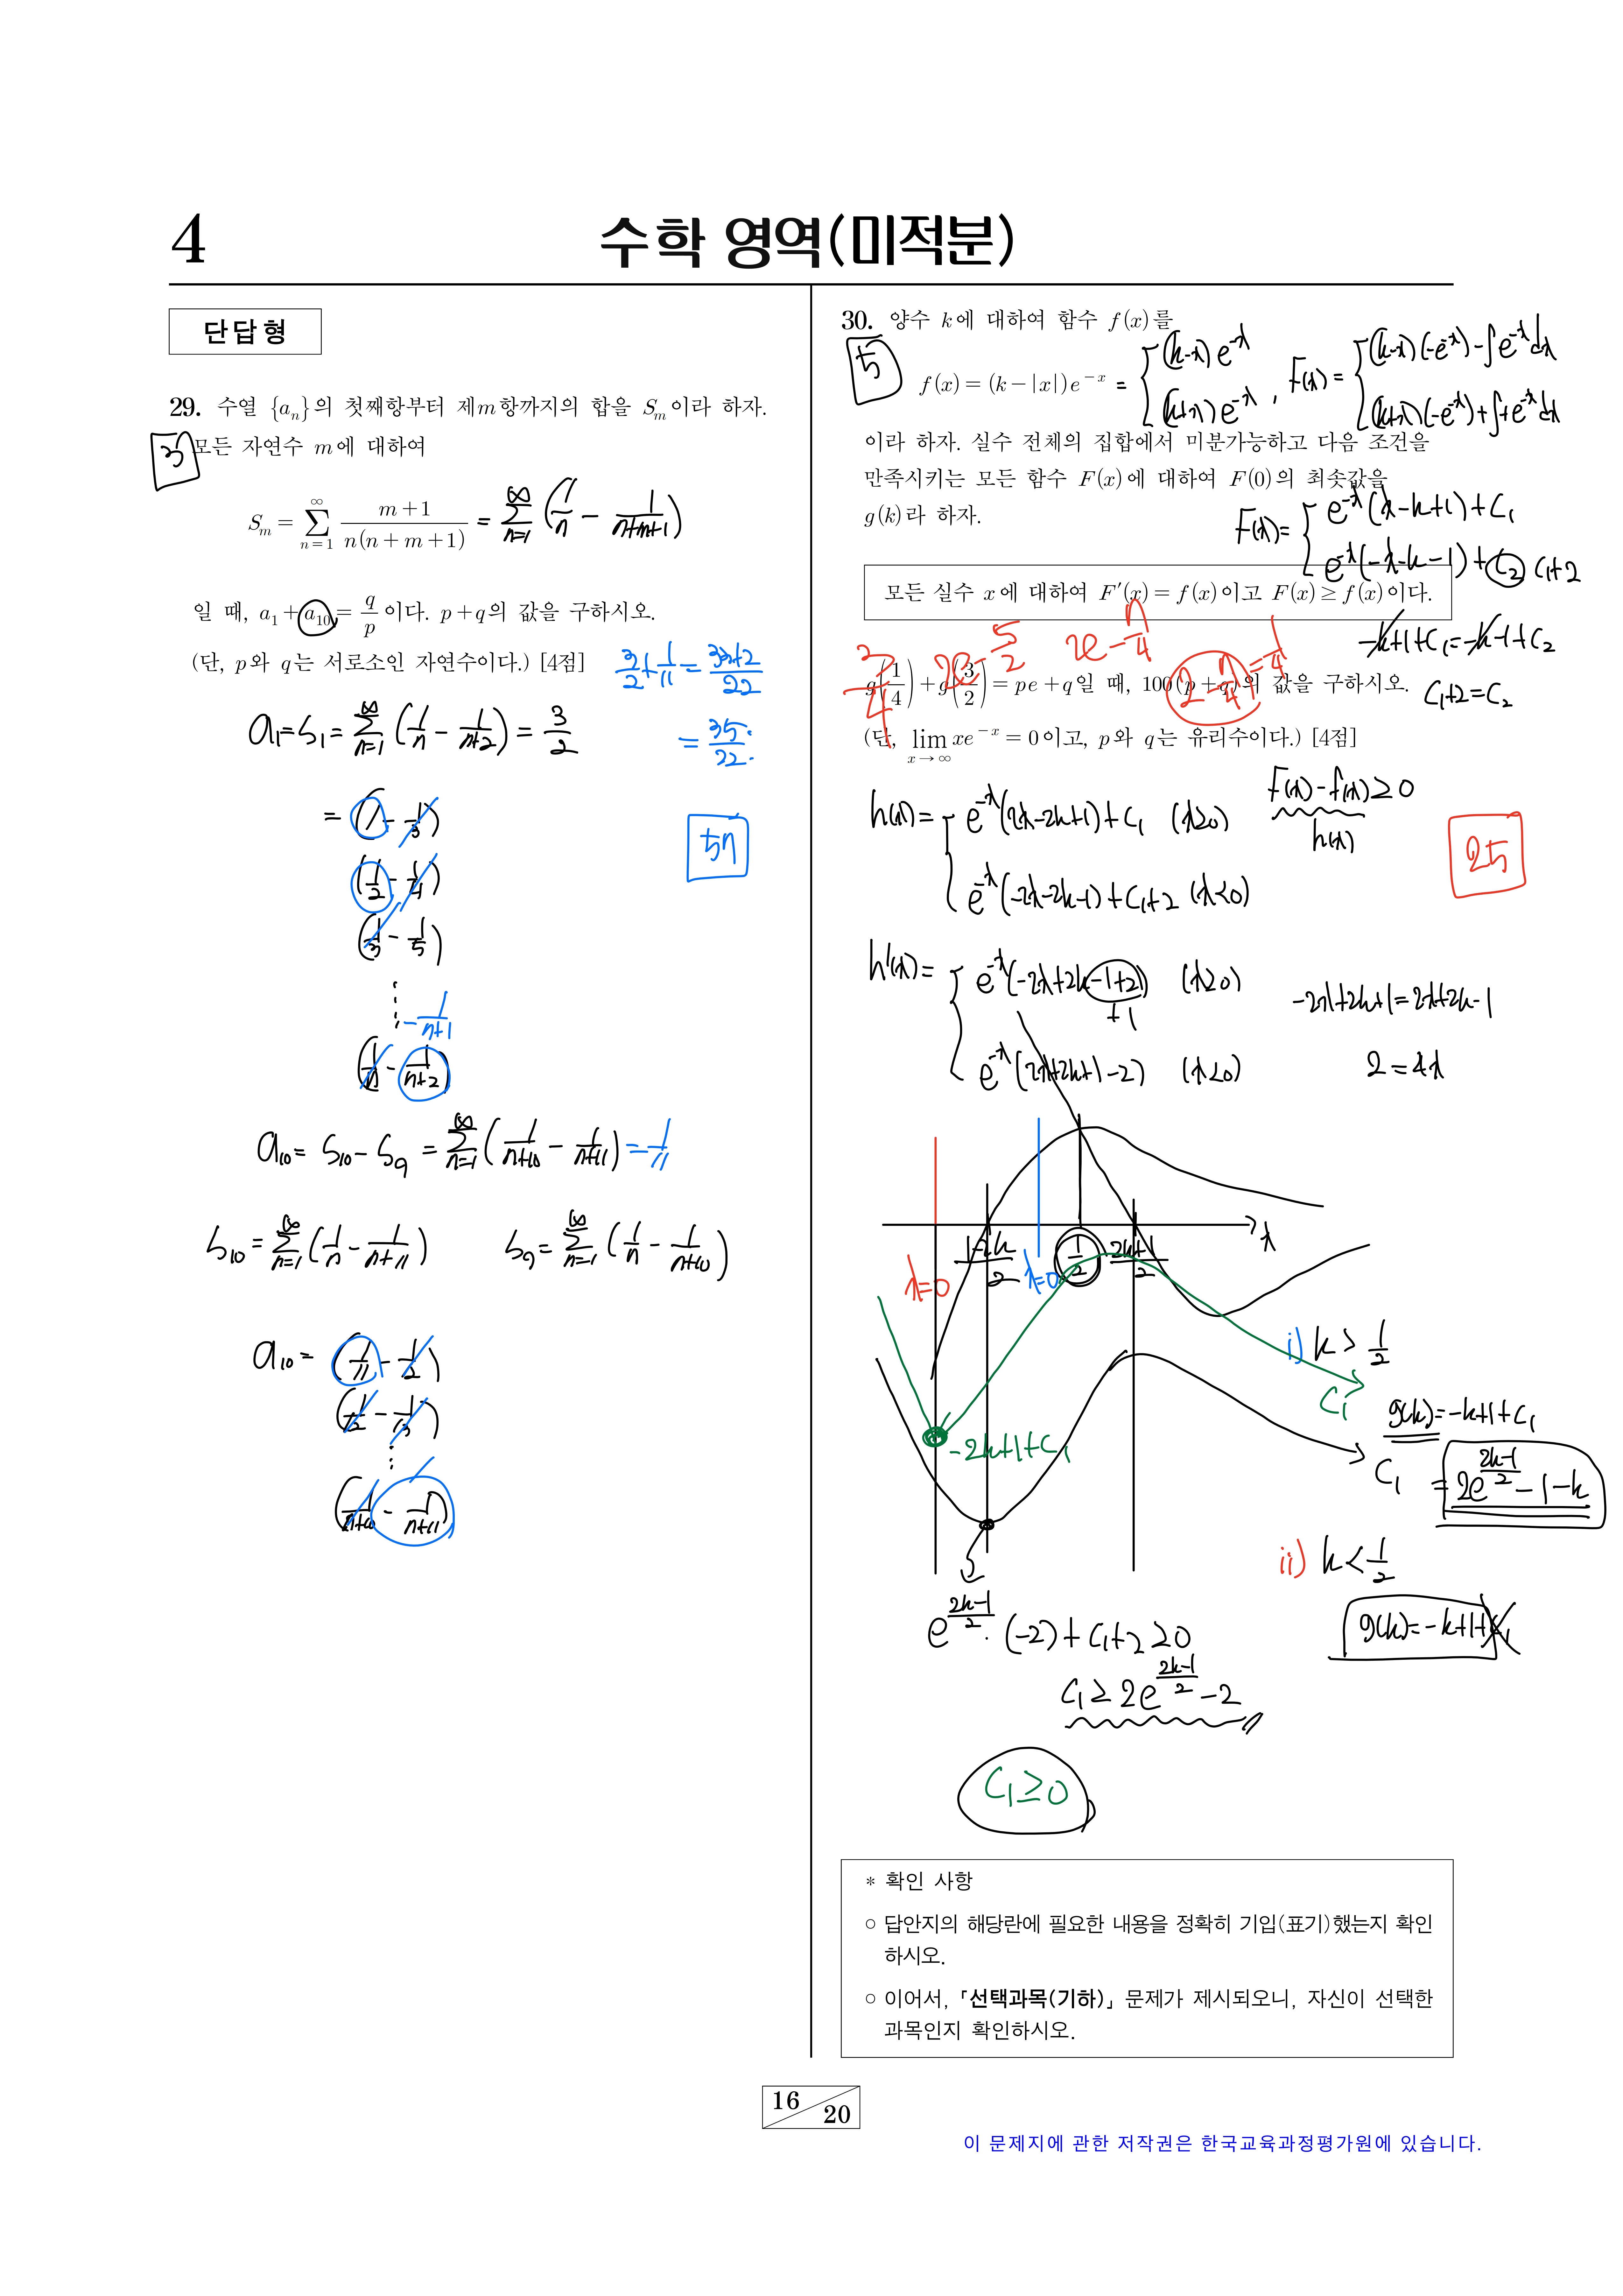 4
수학 영역(미적분)
단답형
29. 수열 {aₙ}의 첫째항부터 제m항까지의 합을 Sₘ이라 하자.
3
모든 자연수 m에 대하여
Sₘ = ∑_{n=1}^{∞} (m+1)/(n(n+m+1)) = ∑_{n=1}^{∞} (1/n - 1/(n+m+1))
일 때, a₁+a₁₀ = q/p 이다. p+q의 값을 구하시오.
(단, p와 q는 서로소인 자연수이다.) [4점]
3/2 + 1/11 = (33+2)/22
= 35/22
57
a₁ = S₁ = ∑_{n=1}^{∞} (1/n - 1/(n+2)) = 3/2
= (1 - 1/3)
(1/2 - 1/4)
(1/3 - 1/5)
⋮ - 1/(n+1)
(1/n - 1/(n+2))
a₁₀ = S₁₀ - S₉ = ∑_{n=1}^{∞} (1/(n+10) - 1/(n+11)) = 1/11
S₁₀ = ∑_{n=1}^{∞} (1/n - 1/(n+11)) S₉ = ∑_{n=1}^{∞} (1/n - 1/(n+10))
a₁₀ = (1/11 - 1/12)
(1/12 - 1/13)
⋮
(1/(n+10) - 1/(n+11))
30. 양수 k에 대하여 함수 f(x)를
5
f(x) = (k-|x|)e^{-x} = { (k-x)e^{-x}, (k+x)e^{-x} , F(x) = { (k-x)(-e^{-x}) - ∫e^{-x}dx, (k+x)(-e^{-x}) + ∫+e^{-x}dx
이라 하자. 실수 전체의 집합에서 미분가능하고 다음 조건을
만족시키는 모든 함수 F(x)에 대하여 F(0)의 최솟값을
g(k)라 하자.
F(x) = { e^{-x}(x-k+1)+C₁
e^{-x}(-x-k-1)+C₂ C₁+2
모든 실수 x에 대하여 F′(x)=f(x)이고 F(x)≥f(x)이다.
-k+1+C₁=-k-1+C₂
3/4 2e-5/2 2e-7/4 2-7/4=1/4
g(1/4)+g(3/2)=pe+q일 때, 100(p+q)의 값을 구하시오.
C₁+2=C₂
(단, lim_{x→∞} xe^{-x}=0이고, p와 q는 유리수이다.) [4점]
F(x)-f(x)≥0
h(x)
h(x) = { e^{-x}(2x-2k+1)+C₁ (x≥0)
e^{-x}(-2x-2k-1)+C₁+2 (x<0)
25
h′(x) = { e^{-x}(-2x+2k-1+2) (x≥0)
+1
e^{-x}(2x+2k+1-2) (x<0)
-2x+2k+1=2x+2k-1
2=4x
x
(1-2k)/2 1/2 (2k+1)/2
x=0 x=0
i) k > 1/2
C₁
-2k+1+C₁
g(k)=-k+1+C₁
C₁
= 2e^{(2k-1)/2}-1-k
ii) k < 1/2
g(k)=-k+1+C₁
e^{(2k-1)/2}·(-2)+C₁+2≥0
C₁≥2e^{(2k-1)/2}-2
C₁≥0
* 확인 사항
○ 답안지의 해당란에 필요한 내용을 정확히 기입(표기)했는지 확인
하시오.
○ 이어서, 「선택과목(기하)」 문제가 제시되오니, 자신이 선택한
과목인지 확인하시오.
16
20
이 문제지에 관한 저작권은 한국교육과정평가원에 있습니다.